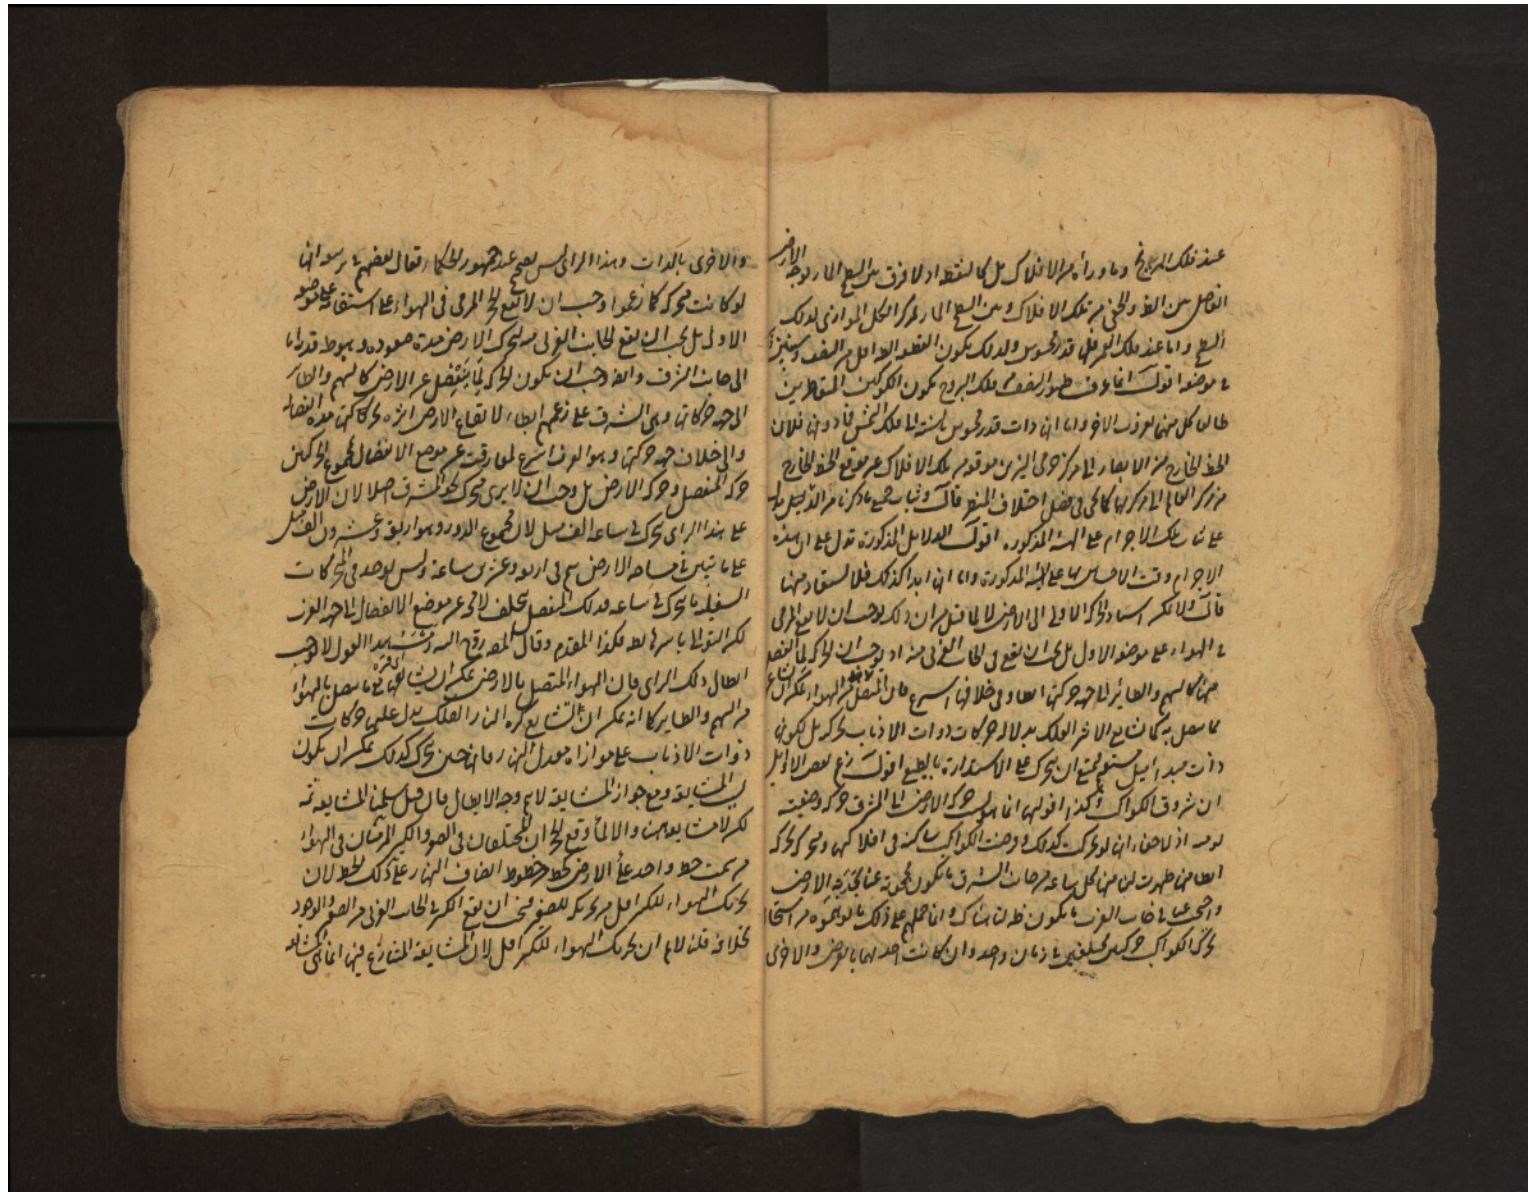 عند فلك المريخ وما وراءه من الافلاك بل كالنقطة اذ لا فرق بين السطح المار بوجه الارض
الفاصل بين الظاهر والخفي من تلك الافلاك وبين السطح المار بمركز الكل الموازي لذلك
السطح واما عند فلك القمر فلها قدر محسوس ولذلك يكون القطر الظاهر اقل من النصف
في موضعه اقول انما عرف ظهور النصف من فلك البروج بكون الكوكبين المتقاطرين
طالعا كل منهما لغروب الاخر واما انها ذات قدر محسوس بالنسبة الى فلك الشمس فما دونها فلان
الخط الخارج من الابصار الى مركز جرمي النيرين موقعه من تلك الافلاك غير موقع الخط الخارج
من مركز العالم الى مركزيهما كما يجي في فصل اختلاف المنظر قال وثبات جميع ما ذكرنا من الدلائل
على ثبات تلك الاجرام على الهيئة المذكورة اقول الدلايل المذكورة تدل على ان هذه
الاجرام وقت على الهيئة المذكورة واما انها ابدا كذلك فلا يستفاد منها
قال ولا يمكن اسناد الحركة الاولى الى الارض لا لما قيل من ان ذلك يوجب ان لا يقع المرمي
في الهواء على موضعه الاول بل يجب ان يقع في الجانب الغربي منه او يوجب ان الحركة لما انفصل
عنها كالسهم والطائر الى جهة حركتها ابطأ وفي خلافها اسرع فان المتصل بها من الهواء يمكن ان يشايعها
بما يتصل به كما يشايع الاثير الفلك بدلالة حركات ذوات الاذناب بحركته بل لكونها
ذات مبدأ ميل مستقيم فيمتنع ان يتحرك على الاستدارة بالطبع اقول زعم بعض الاوايل
ان شروق الكواكب وكذا افولها انما هو بسبب حركة الارض الى المشرق حركة وضعية
يومية اذ لا خفاء انها لو تحركت كذلك وفرضت الكواكب ساكنة في افلاكها ومتحركة بحركة
ابطأ منها ظهرت لنا منها كل ساعة من جانب الشرق ما يكون محجوبة عنا بحدبة الارض
واختفى عنا في جانب الغرب ما يكون ظاهرا هناك وانما حملهم على ذلك ما توهموه من استحالة
تحرك الكواكب حركتين مختلفتين في زمان واحد وان كانت احديهما بالعرض والاخرى
والاخرى بالذات وهذا الراي ليس بصحيح عند جمهور الحكماء فقال بعضهم في رده انها
لو كانت متحركة كما زعموا وجب ان لا يقع الحجر المرمي في الهواء على استقامة على موضعه
الاول بل يجب ان يقع في الجانب الغربي منه لتحرك الارض مدة صعوده وهبوطه قدرا ما
الى جانب الشرق وايضا وجب ان تكون الحركة لما ينفصل عن الارض كالسهم والطائر
الى جهة حركاتها وهي الشرق على زعمهم ابطأ لا يقع الارض اثره بحركتها مدة انفصاله
والى خلاف جهة حركتها وهو الغرب اسرع لمفارقته عن موضع الانفصال بمجموع الحركتين
حركة المنفصل وحركة الارض بل وجب ان لا يرى متحرك نحو المشرق اصلا لان الارض
على هذا الراي تتحرك في ساعة الف ميل لان مجموع الدور وهو اربعة وعشرون الف ميل
على ما تبين في مساحة الارض يتم في اربع وعشرين ساعة وليس يوجد في المتحركات
السفلية ما يتحرك في ساعة فذلك المنفصل يتخلف لا محالة عن موضع الانفصال الى جهة الغرب
لكن التوالي باسرها باطلة فكذا المقدم وقال المصنف رفع الله هذا القول لا يوجب
ابطال ذلك الراي فان الهواء المتصل بالارض يمكن ان يشايعها مع ما يتصل بالهواء
من السهم والطاير كما انه يمكن ان يشايع كرة النار الفلك يدل على حركات
ذوات الاذناب على موازاة معدل النهار فانها حين يتحرك كذلك يمكن ان يكون
للمشايعة ومع جواز المشايعة لا يتم وجه الابطال فان قيل سلمنا المشايعة ثمة
لكن لا مشايعة ههنا والا لما وقع الحجران المختلفان في الصغر والكبر المرميان في الهواء
من سمت خط واحد على الارض كخط من خطوط انصاف النهار على ذلك الخط لان
تحريك الهواء للكبير اقل من تحريكه للصغير فيجب ان يقع الكبير في الجانب الغربي من الصغير والوجود
بخلافه قلنا لا نم ان تحريك الهواء للكبير اقل لان المشايعة المتنازع فيها انما هي